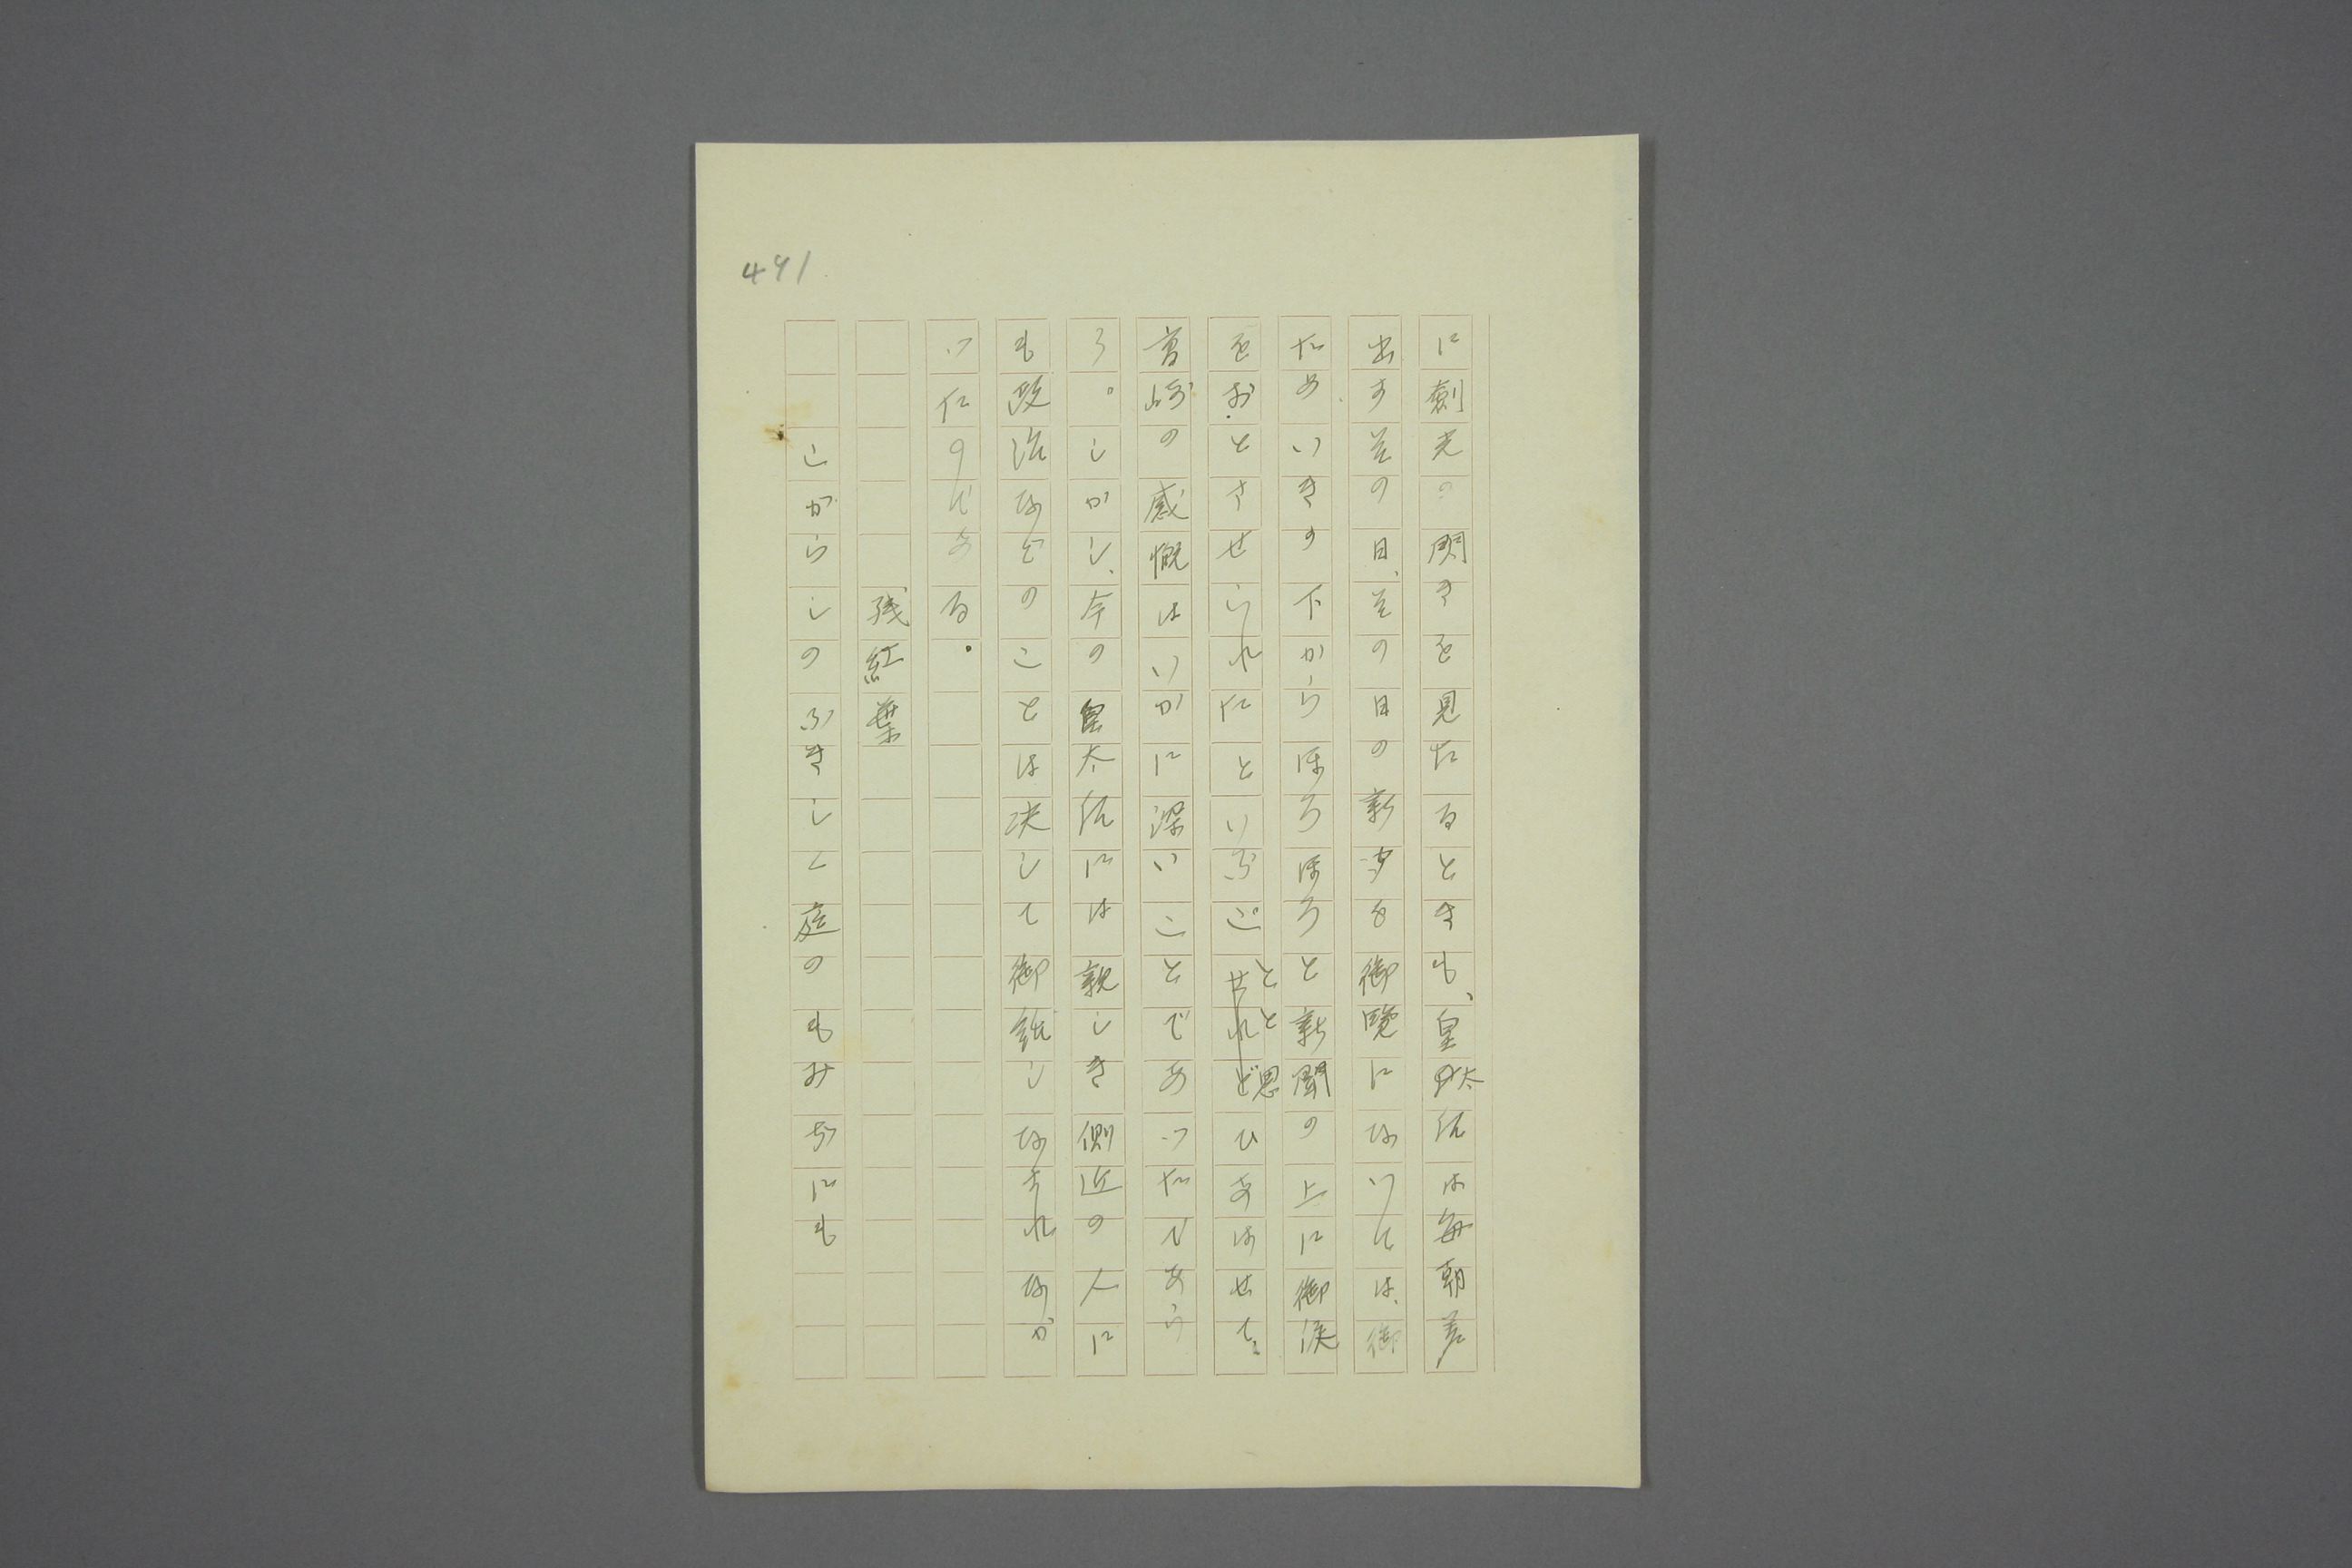 491
に剣光の閃きを見たるときも、皇太后は毎朝差
出す其の日、其の日の新聞を御覧になつては、御
ためいきの下からほろほろと新聞の上に御涙
をおとさせられたといふことと思ひあはせて、
宮崎の感慨はいかに深いことであつたであら
う。しかし、今の皇太后には親しき側近の人に
も政治などのことは決して御話しなされなか
つたのである。
残紅葉
こがらしのふきしく庭のもみぢにも